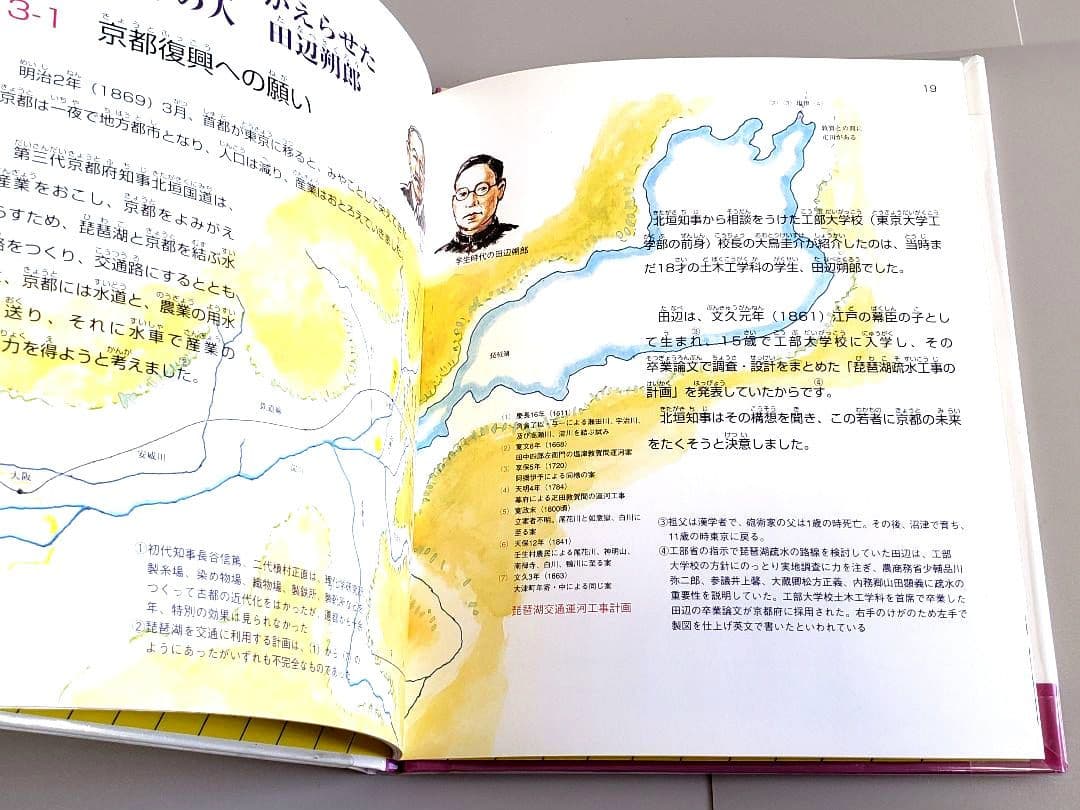 3-1
えらせた
の人 田辺朔郎
京都復興への願い
明治2年（1869）3月、首都が東京に移ると、みやことして栄えてきた
京都は一夜で地方都市となり、人口は減り、産業はおとろえていきました。
第三代京都府知事北垣国道は、
産業をおこし、京都をよみがえ
らすため、琵琶湖と京都を結ぶ水
路をつくり、交通路にするととも
、京都には水道と、農業の用水
送り、それに水車で産業の
力を得ようと考えました。
安威川
大阪
淀川
①初代知事長谷信篤、二代槇村正直は、理化学研究所
製糸場、染め物場、織物場、製鉄所、
つくって古都の近代化をはかったが、
年、特別の効果は見られなかった
②琵琶湖を交通に利用する計画は、(1)から(7)の
ようにあったがいずれも不完全なものであった
19
塩津
敦賀との間に
疋田がある
学生時代の田辺朔郎
琵琶湖
北垣知事から相談をうけた工部大学校（東京大学工
学部の前身）校長の大鳥圭介が紹介したのは、当時ま
だ18才の土木工学科の学生、田辺朔郎でした。
田辺は、文久元年（1861）江戸の幕臣の子とし
て生まれ、③15歳で工部大学校に入学し、その
卒業論文で調査・設計をまとめた「琵琶湖疏水工事の
計画」を発表していたからです。④
北垣知事はその構想を聞き、この若者に京都の未来
をたくそうと決意しました。
(1) 慶長16年（1611）
角倉了以・与一による瀬田川、宇治川、
及び高瀬川、淀川を結ぶ試み
(2) 寛文8年（1668）
田中四郎左衛門の塩津敦賀間運河案
(3) 享保5年（1720）
阿礪伊予による同様の案
(4) 天明4年（1784）
幕府による疋田敦賀間の運河工事
(5) 寛政末（1800頃）
立案者不明。尾花川と如意嶽、白川に
至る案
(6) 天保12年（1841）
壬生村農民による尾花川、神明山、
南禅寺、白川、鴨川に至る案
(7) 文久3年（1863）
大津町年寄・中による同じ案
琵琶湖交通運河工事計画
③祖父は漢学者で、砲術家の父は1歳の時死亡。その後、沼津で育ち、
11歳の時東京に戻る。
④工部省の指示で琵琶湖疏水の路線を検討していた田辺は、工部
大学校の方針にのっとり実地調査に力を注ぎ、農商務省少輔品川
弥二郎、参議井上馨、大蔵卿松方正義、内務卿山田顕義に疏水の
重要性を説明していた。工部大学校土木工学科を首席で卒業した
田辺の卒業論文が京都府に採用された。右手のけがのため左手で
製図を仕上げ英文で書いたといわれている